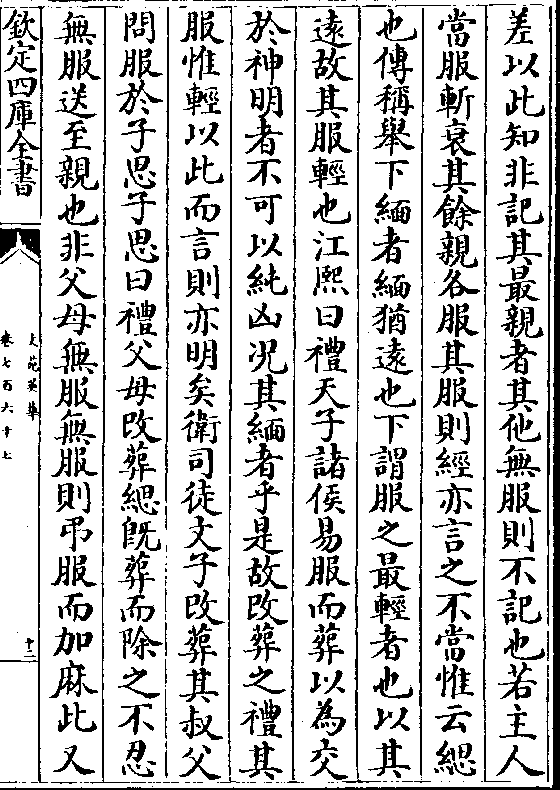 差以此知非記其最親者其他無服則不記也若主人
當服斬衰其餘親各服其服則經亦言之不當惟云緦
也傳稱舉下緬者緬猶遠也下謂服之最輕者也以其
遠故其服輕也江熙曰禮天子諸侯易服而葬以為交
於神明者不可以純凶況其緬者乎是故改葬之禮其
服惟輕以此而言則亦明矣衛司徒文子改葬其叔父
問服於子思子思曰禮父母改葬緦既葬而除之不忍
無服送至親也非父母無服無服則弔服而加麻此又
欽定四庫全書
文苑英華
卷七百六十七
十二